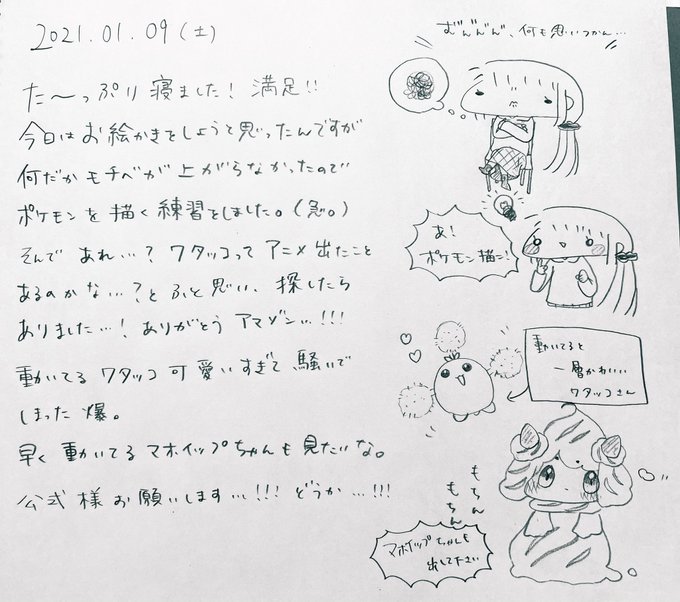 2021.01.09(土)
た〜っぷり寝ました！満足!!
今日はお絵かきをしようと思ったんですが
何だかモチベが上がらなかったので
ポケモンを描く練習をしました。(急。)
そんで あれ…？ワタッコって アニメ出たこと
あるのかな…？とふと思い、探したら
ありました…！ありがとう アマゾン…!!!
動いてる ワタッコ 可愛いすぎて 騒いで
しまった 爆。
早く動いてるマホイップちゃんも見たいな。
公式様お願いします…!!! どうか…!!!
むんんんん、何も思いつかん…
あ！
ポケモン描こ！
動いてると
一層かわいい
ワタッコさん
もちん
もちん
マホイップちゃんも
出して下さい